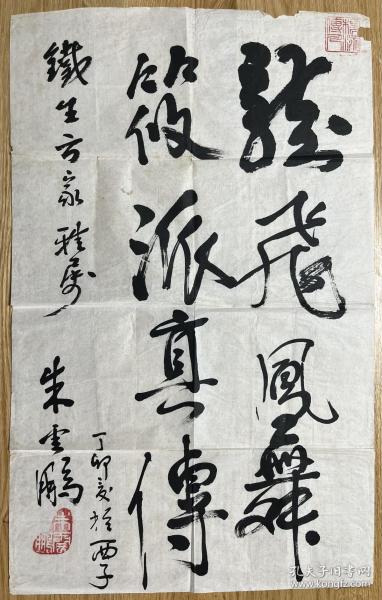 龍飛鳳舞
筱派真傳
丁卯夏於西子
鐵生方家雅屬
朱雲鵬
孔夫子旧书网
www.kongfz.com